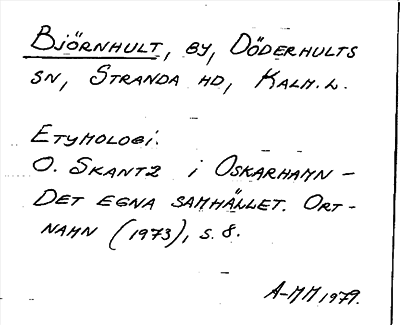 BJÖRNHULT, BY, DÖDERHULTS
SN, STRANDA HD, KALM. L.
ETYMOLOGI.
O. SKANTZ i OSKARHAMN -
DET EGNA SAMHÄLLET. ORT-
NAMN (1973), S. 8.
A-MM 1979.